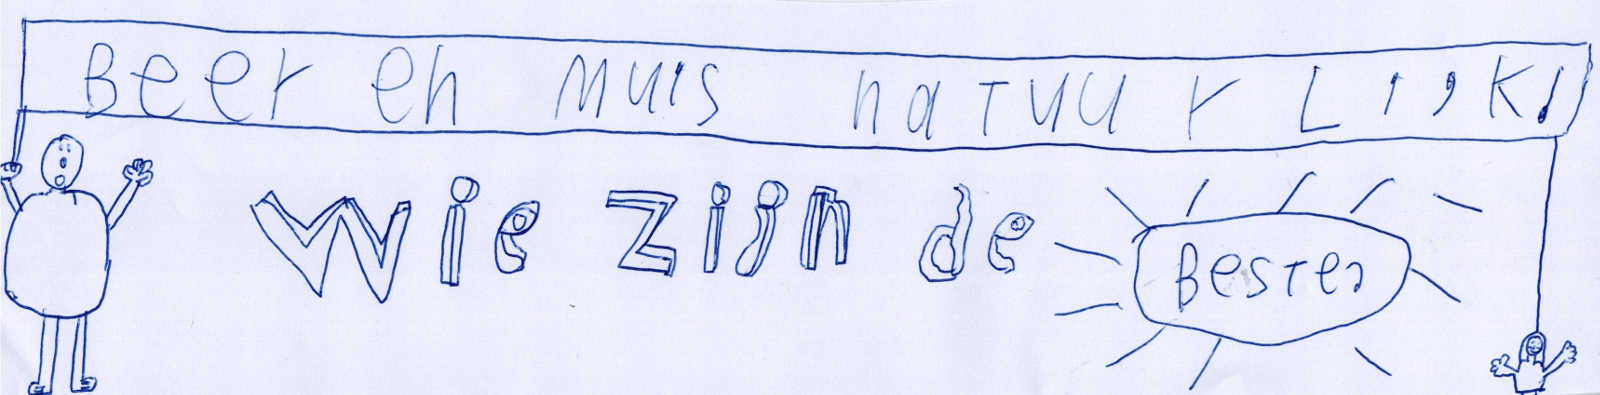 Beer en Muis natuurLijK!
Wie zijn de
Bester